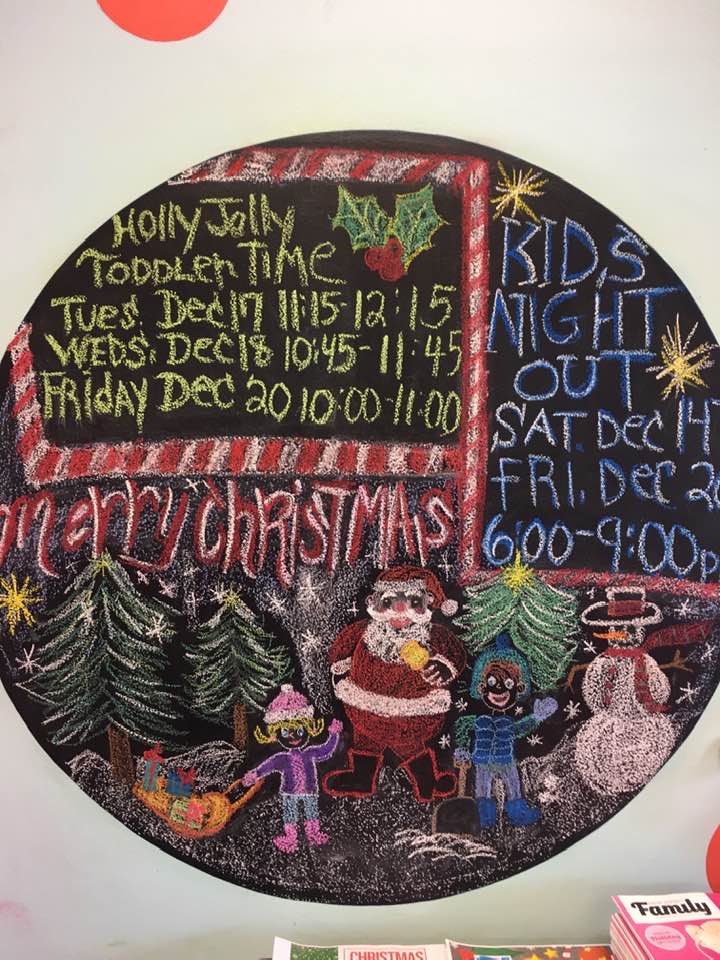 Holly Jolly
Toddler Time
Tues. Dec 17 11:15-12:15
Weds. Dec 18 10:45-11:45
Friday Dec 20 10:00-11:00
KIDS
NIGHT
OUT
SAT. Dec 14
FRI. Dec
6:00-9:00p
merry christmas
Family
CHRISTMAS